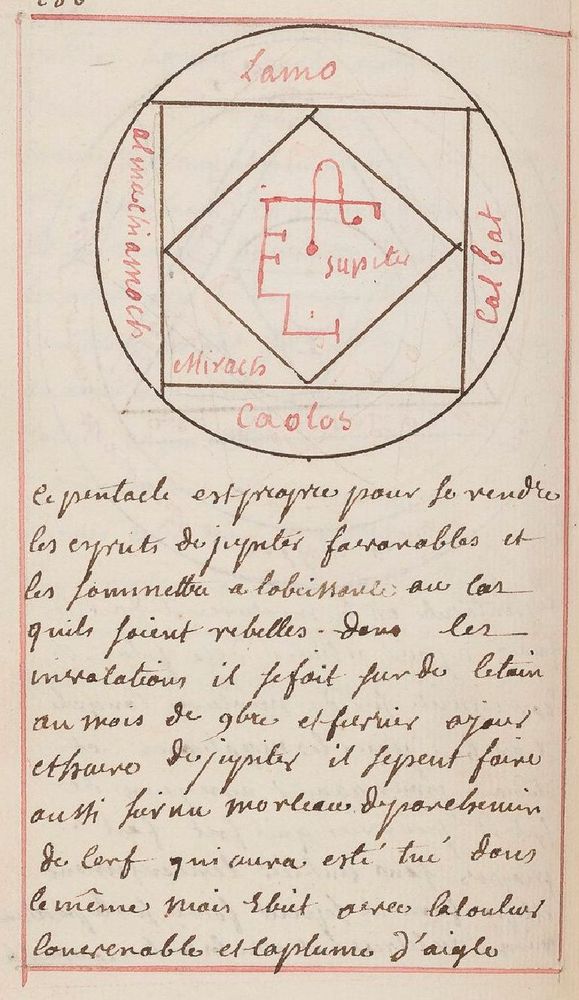 Lamo
almachiamoch
Calbat
Jupiter
Mirach
Caolos
Ce pentacle est propre pour se rendre
les esprits de jupiter favorables et
les sommettre a lobeissance au cas
quils soient rebelles. dans les
il se fait sur de letain
au mois de 9bre et fevrier a jour
et haure de jupiter il se peut faire
aussi sur un morleau de parchemin
de Cerf qui aura esté tué dans
le même mois avec la couleur
Convenable et la plume d'aigle